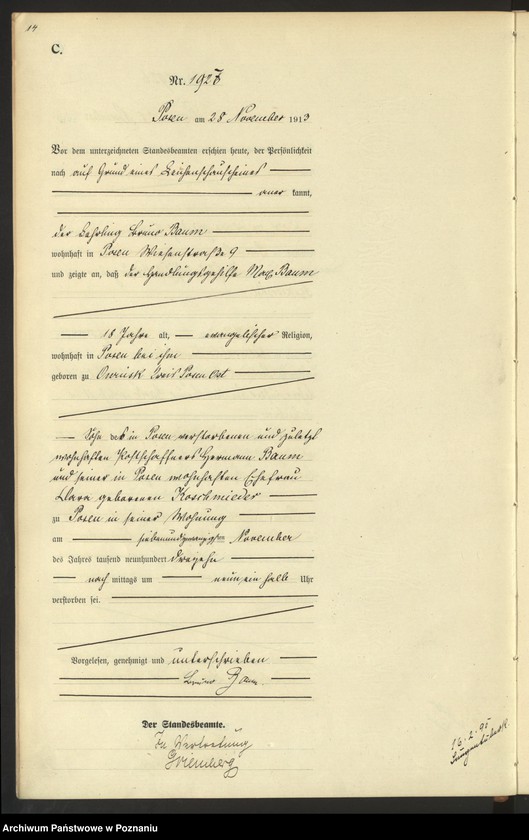 14
C.
Nr. 1927
Posen am 28 November 1913
Vor dem unterzeichneten Standesbeamten erschien heute, der Persönlichkeit
nach auf Grund eines Leichenschauscheines
aner kannt,
der Lehrling Bruno Baum
wohnhaft in Posen Wiesenstraße 9
und zeigte an, daß der Handlungsgehilfe Max Baum
18 Jahre alt, evangelischer Religion,
wohnhaft in Posen bei ihm
geboren zu Kreis Posen Ost
Sohn des in Posen verstorbenen und zuletzt
wohnhaften Postschaffners Hermann Baum
und seiner in Posen wohnhaften Ehefrau
Klara geborenen Koschmieder
zu Posen in seiner Wohnung
am siebenundzwanzigsten November
des Jahres tausend neunhundert dreizehn
nach mittags um neun ein halb Uhr
verstorben sei.
Vorgelesen, genehmigt und unterschrieben
Bruno Baum.
Der Standesbeamte.
In Vertretung
16.2.95
Archiwum Państwowe w Poznaniu